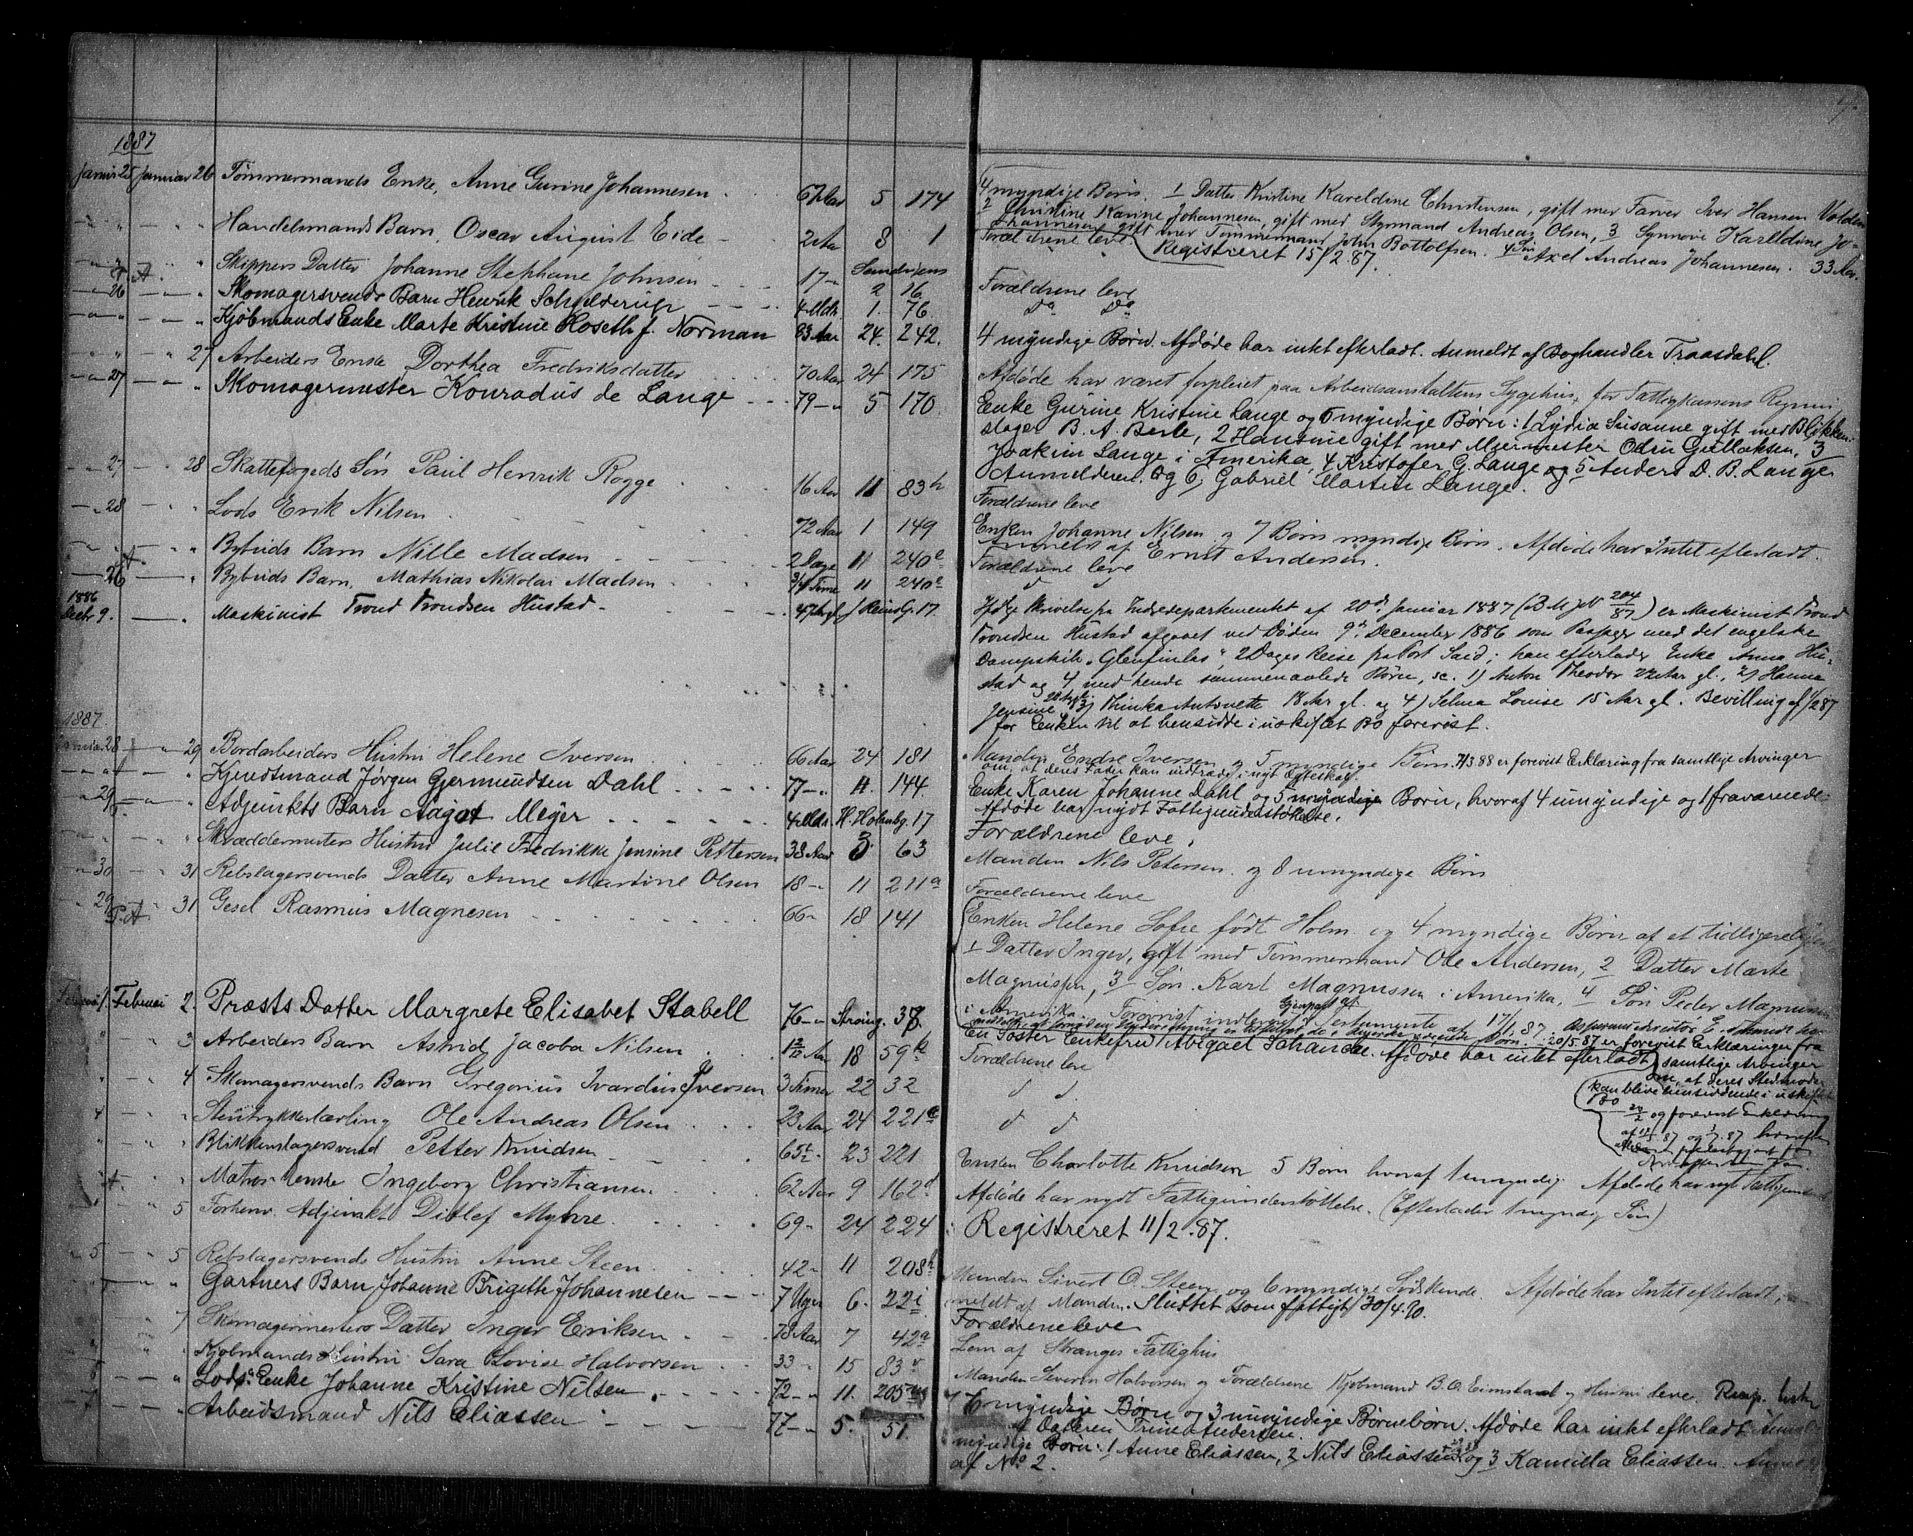 1887
Januar 25 Januar 26 Tømmermands Enke, Anne Gurine Johannesen 67 Aar 5 174
" " Handelsmands Barn, Oscar August Eide 2 Aar 8 1
" " Skippers Datter Johanne Stephane Johnsen 17 - Sandvigens 2 16
26 " Skomagersvends Barn Henrik Schjelderup 4 Mdr. 1. 76
" " Kjøbmands Enke Marte Kristine Roseth f. Norman 83 Aar 24. 242.
" 27 Arbeiders Enke Dorthea Fredriksdatter 70 Aar 24 175
27 " Skomagermester Konradus de Lange 79 - " 5 170
27 28 Skattefogeds Søn Paul Henrik Rogge 16 Aar 11 83 b
28 " Lods Erik Nilsen 72 Aar 1 149
" " Bybuds Barn Nille Madsen 2 Dage 11 240 e
26 " Bybuds Barn, Mathias Nikolai Madsen 3/4 Time 11 240 e
1886
Decbr 9. " Maskinist Trond Trondsen Hustad 47 Aar gl. 17
1887
Januar 28 29 Bordarbeiders Hustru Helene Iversen 66 Aar 24 181
" Kjendtmand Jørgen Gjermundsen Dahl 77 - " 11. 144.
29 " Adjunkts Barn Aagot Meyer 4 Mdr. H. Holmbg. 17
" " Skræddermesters Hustru Julie Fredrikke Jensine Pettersen 38 Aar 3 63
30 31 Rebslagersvends Datter Anne Martine Olsen 18 - 11 211 a
29 31 Gesel Rasmus Magnesen 66 - 18 141
Februar 1. Februar 2. Præsts Datter Margrete Elisabet Stabell 76 - " Strangg. 37.
3 Arbeiders Barn Astrid Jacoba Nilsen Aar 18 59 b
4 Skomagersvends Barn Gregorius Ivardius Iversen 3 Timer 22 32
4 " Stentrykkerlærling Ole Andreas Olsen 23 Aar 24 221 a
" " Blikkenslagersvend Petter Knudsen 65 23 221
" Matros Enke Ingeborg Christiansen 62 Aar 9 162 d
5 Forhenv. Adjunkt Ditlef Myhre 69 - 24 224
5 5 Rebslagersvends Hustru Anne Steen 42 - 11 208 b
" Gartners Barn Johanne Brigethe Johannesen 7 Uger 6. 22 i
7 Skomagermesters Datter Inger Eriksen 78 Aar 7 42 a
" Kjøbmands Hustru Sara Lovise Halvorsen 33 15 83
8 " Lods Enke Johanne Kristine Nilsen 72 - " 11. 205
7 " Arbeidsmand Nils Eliassen 77 - " 5. 51.
4 myndige Børn. 1 Datter Kristine Kareldine Christensen, gift mer Farver Iver Hansen Volden
2 Christine Karine Johannesen, gift med Styrmand Andreas Olsen, 3 Synnøve Karldine Jo-
hannesen gift mer Tømmermand John Bottolfsen. 4 Søn Axel Andreas Johannesen. 33 Aar.
Forældrene leve Registreret 15/2.87.
Forældrene leve
do do
4 myndige Børn. Afdøde har intet efterladt. Anmeldt af Boghandler Traasdahl.
Afdøde har været forpleiet paa Arbeidsanstaltens Sygehus, for Fattigkassens Regning
Enke Gurine Kristine Lange og 6 myndige Børn: 1 Lydia Susanne gift med Blikken-
slager B. A. Berle, 2 Hansine gift med Murmester Odin Gullaksen, 3
Joakim Lange i Amerika, 4 Kristofer G. Lange og 5 Anders D. B. Lange
Anmelderen. Og 6, Gabriel Martin Lange.
Forældrene leve
Enken Johanne Nilsen og 7 Børn myndige Børn. Afdøde har Intet efterladt.
Anmeldt af Ernst Andersen.
Forældrene leve
d d
Ifølge Skrivelse fra Indredepartementet af 20d. Januar 1887 (B M JN 204/87) er Maskinist Trond
Trondsen Hustad afgaaet ved Døden 9d. December 1886 som Passager med det engelske
Dampskib "Glenfinlas", 2 Dages Reise fra Port Said; han efterlader Enke Anna Hu-
stad og 4 med hende sammenavlede Børn, sc. 1) Anton Theodor 22 Aar gl., 2) Hanna
Jensine 20 Aar gl. 3) Thinka Antonette 18 Aar gl. og 4) Selma Louise 15 Aar gl. Bevilling af 1/2 87
for Enken til at hensidde i uskiftet Bo forevist.
Manden Endre Iversen og 5 myndige Børn. 7/3 88 er forevist Erklæring fra samtlige Arvinger
om, at deres Fader kan indtræde i nyt Ægteskab.
Enke Karen Johanne Dahl og 5 myndige Børn, hvoraf 4 umyndige og 1 fraværende.
Afdøde har nydt Fattigunderstøttelse.
Forældrene leve.
Manden Nils Petersen og 8 umyndige Børn
Forældrene leve
Enken Helene Sofie født Holm og 4 myndige Børn af et tidligere
1 Datter Inger, gift med Tømmermand Ole Andersen, 2 Datter Marte
Magnussen, 3 Søn Karl Magnussen i Amerika, 4 Søn Peder Magnussen
i Amerika. Forøvrigt Gjenpart af Testamente af 17/1.87.
20/5.87 er forevist Erklæringer fra
En Søster Enkefru Abigael Schancke. Afdøde har intet efterladt samtlige Arvinger
om, at deres Stedmoder
kan blive hensiddende i uskiftet
Bo og forevist Erklæring
Forældrene leve
d d
d d
Enken Charlotte Knudsen 5 Børn hvoraf 1 umyndig. Afdøde har nydt Fattigunderst.
Afdøde har nydt Fattigunderstøttelse. (Efterlader 1 myndig Søn)
Registreret 11/2.87.
Manden Sivert O. Steen og 6 myndige Sødskende. Afdøde har Intet efterladt;
meldt af Manden. Sluttet som fattigt 30/4.90.
Forældrene leve
Lem af Stranges Fattighus
Manden Severin Halvorsen og Forældrene Kjøbmand B. O. Eimstad og Hustru leve.
6 myndige Børn og 3 umyndige Børnebørn. Afdøde har intet efterladt. Anmeldt
af Datteren Trine Andersen.
myndige Børn: 1 Anne Eliassen, 2 Nils Eliassen og 3 Kamilla Eliassen.
af No 2.